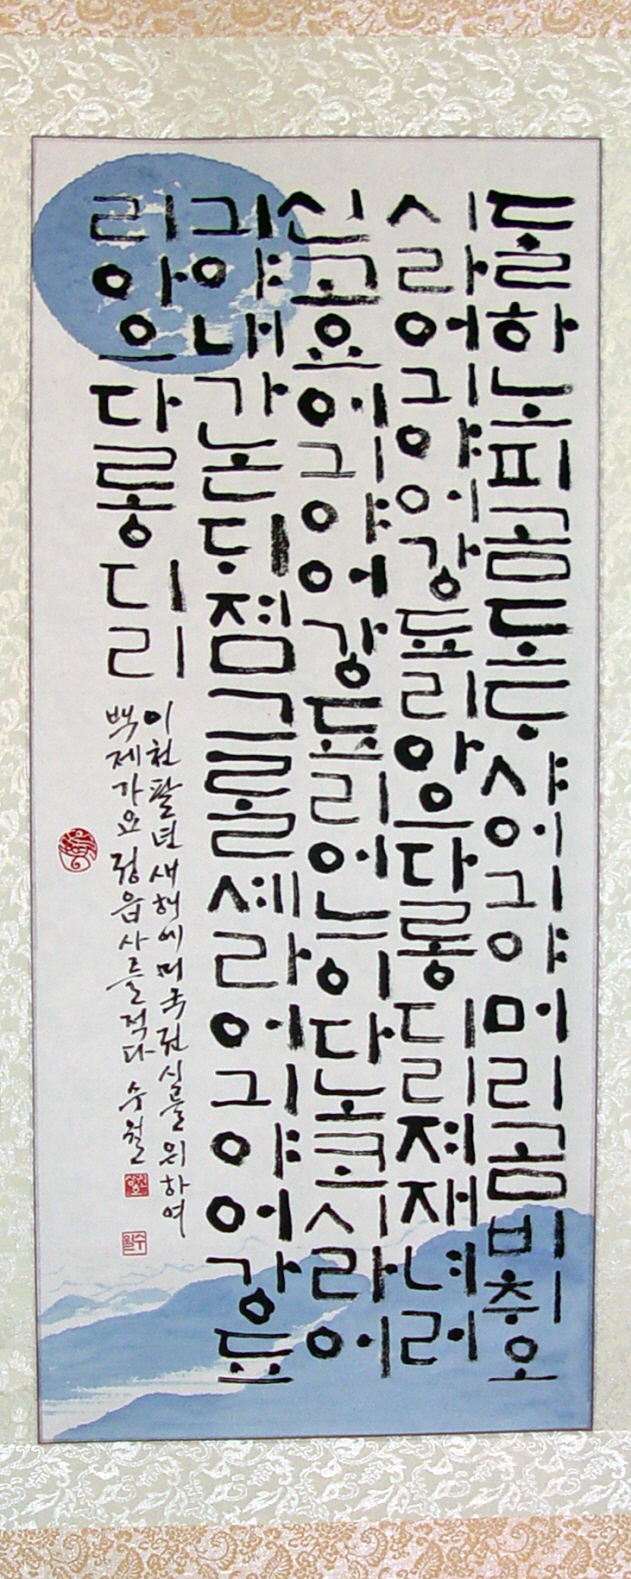 ᄃᆞᆯ하노피곰도ᄃᆞ샤어긔야머리곰비취오
시라어긔야어강됴리아으다롱디리져재녀러
신고요어긔야어강됴리어느이다노코시라어
긔야내가논ᄃᆡ졈그ᄅᆞᆯ셰라어긔야어강됴
리아으다롱디리
이천팔년새해에미국전시를위하여
백제가요정읍사를적다 수월